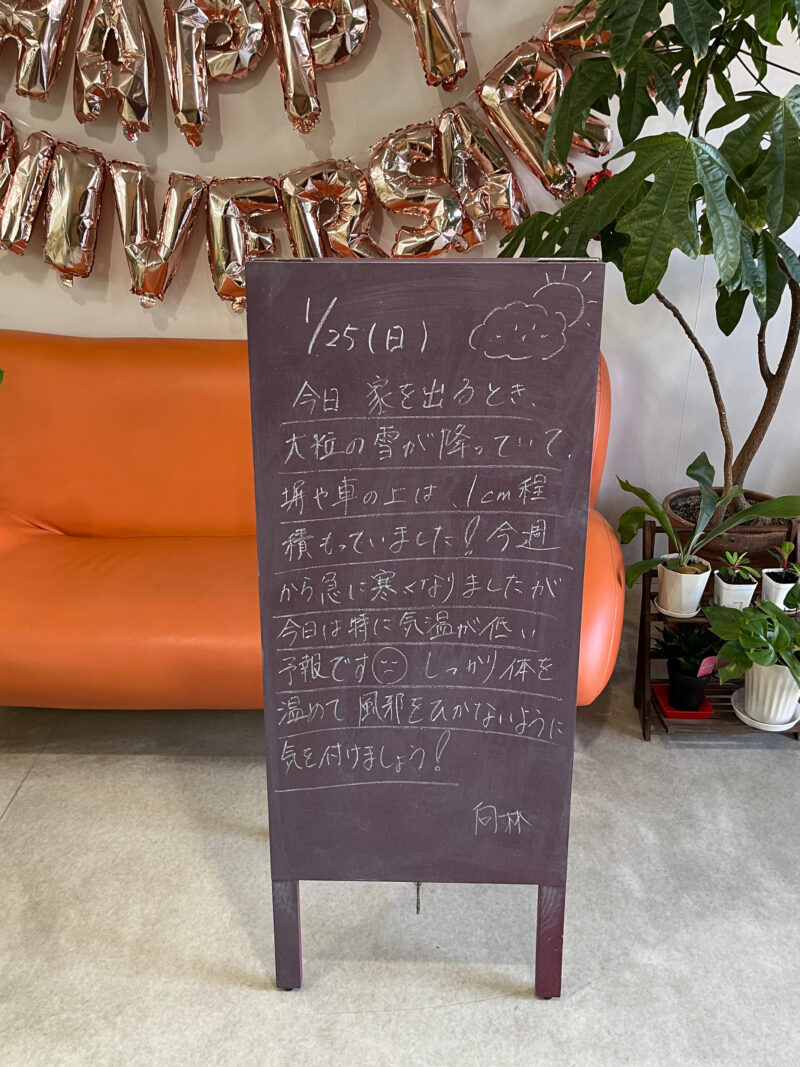 HAPPY
NIVERSAR
1/25(日)
今日 家を出るとき、
大粒の雪が降っていて、
塀や車の上は、1cm程
積もっていました!今週
から急に寒くなりましたが
今日は特に気温が低い
予報です しっかり体を
温めて 風邪をひかないように
気を付けましょう!
向林